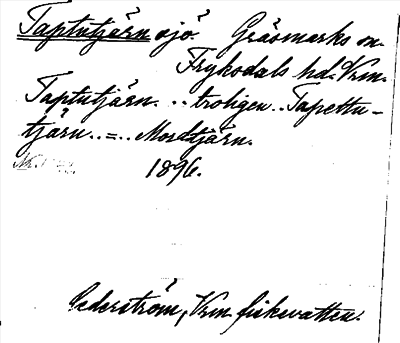 Taptutjärn sjö Gräsmarks sn.
Fryksdals hd. Vrm.
Taptutjärn. .. troligen .. Tapettu-
tjärn .. = .. Mordtjärn.
1896.
Cederström, Vrm. fiskevatten.